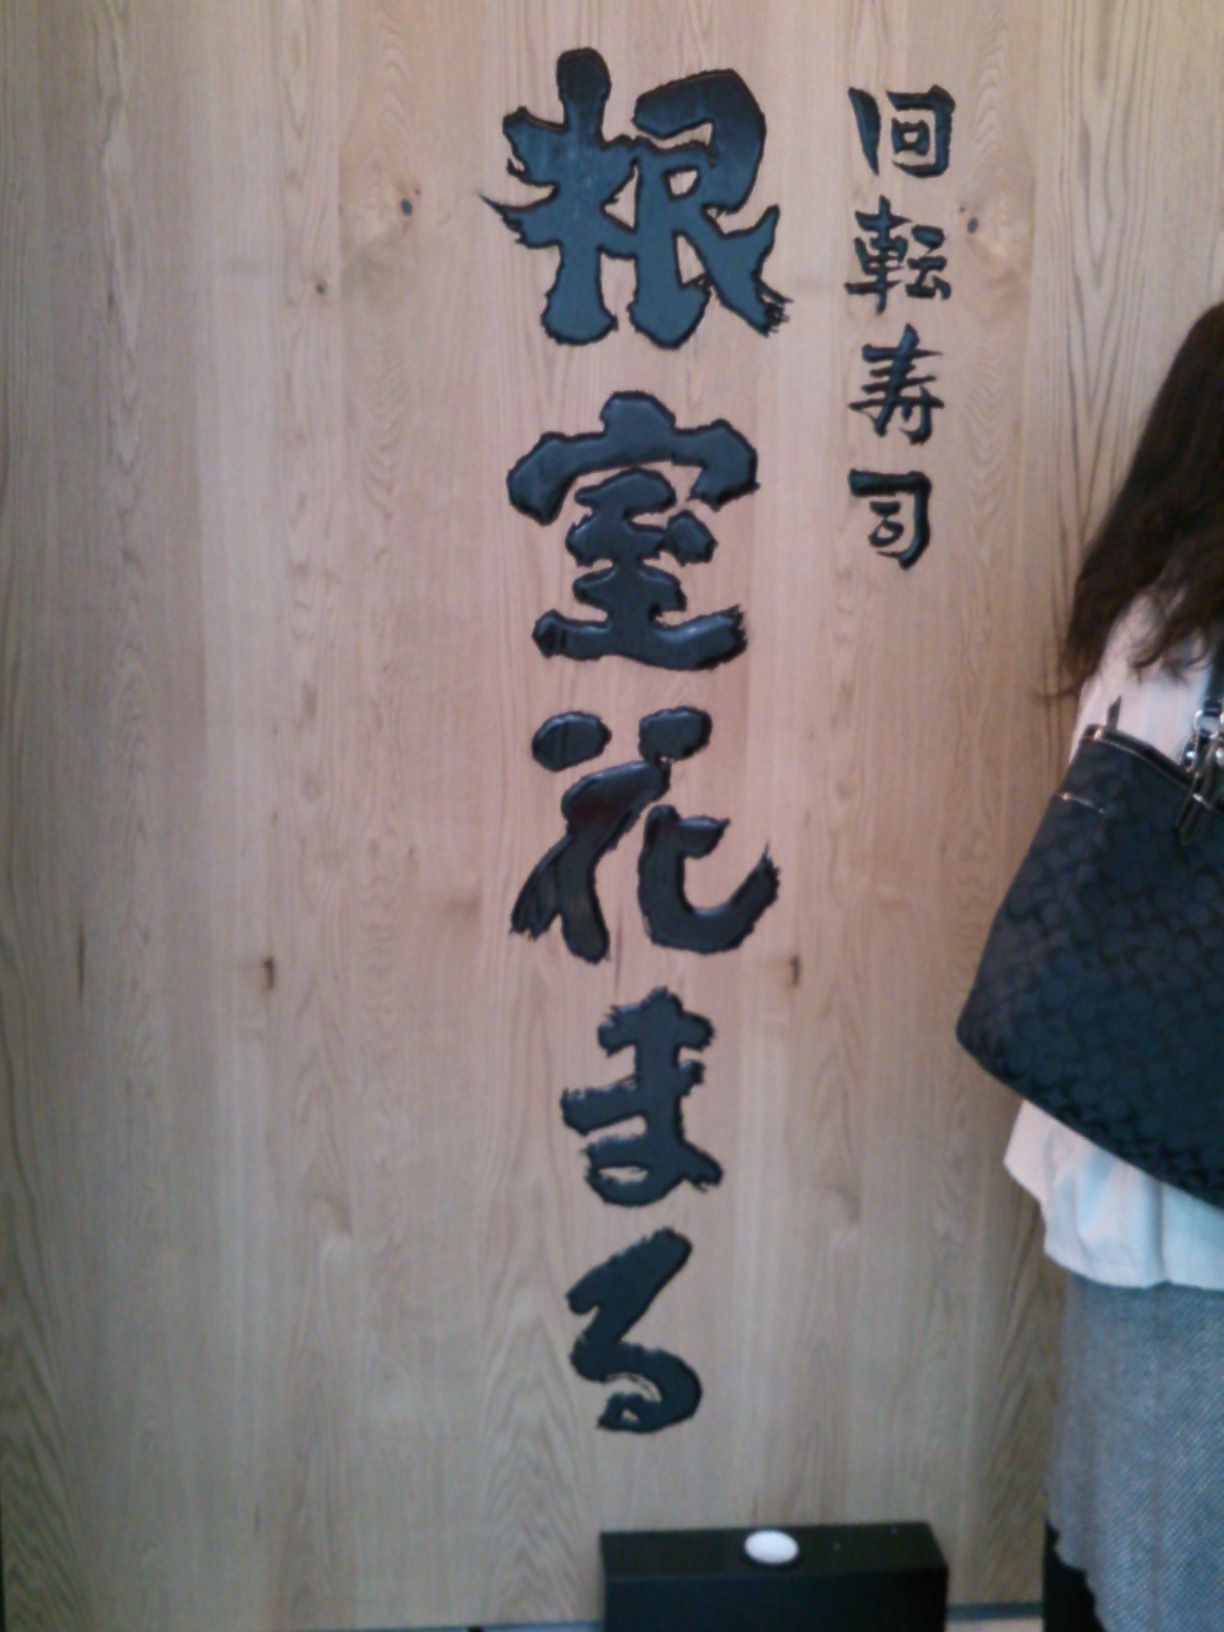 回転寿司
根室花まる